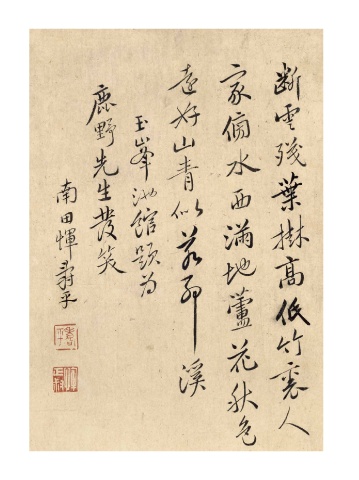 斷雲殘葉樹高低竹裏人
家傍水西滿地蘆花秋色
遠好山青似若耶溪
玉峯池館題為
鹿野先生發笑
南田惲壽平